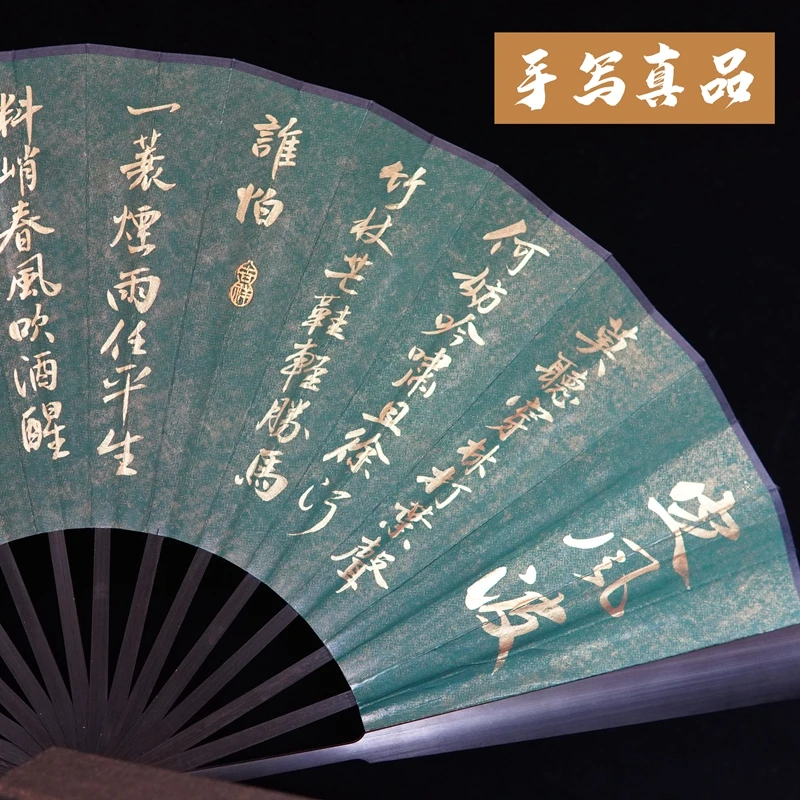 手写真品
定風波
莫聽穿林打葉聲
何妨吟嘯且徐行
竹杖芒鞋輕勝馬
誰怕
吉祥
一蓑煙雨任平生
料峭春風吹酒醒